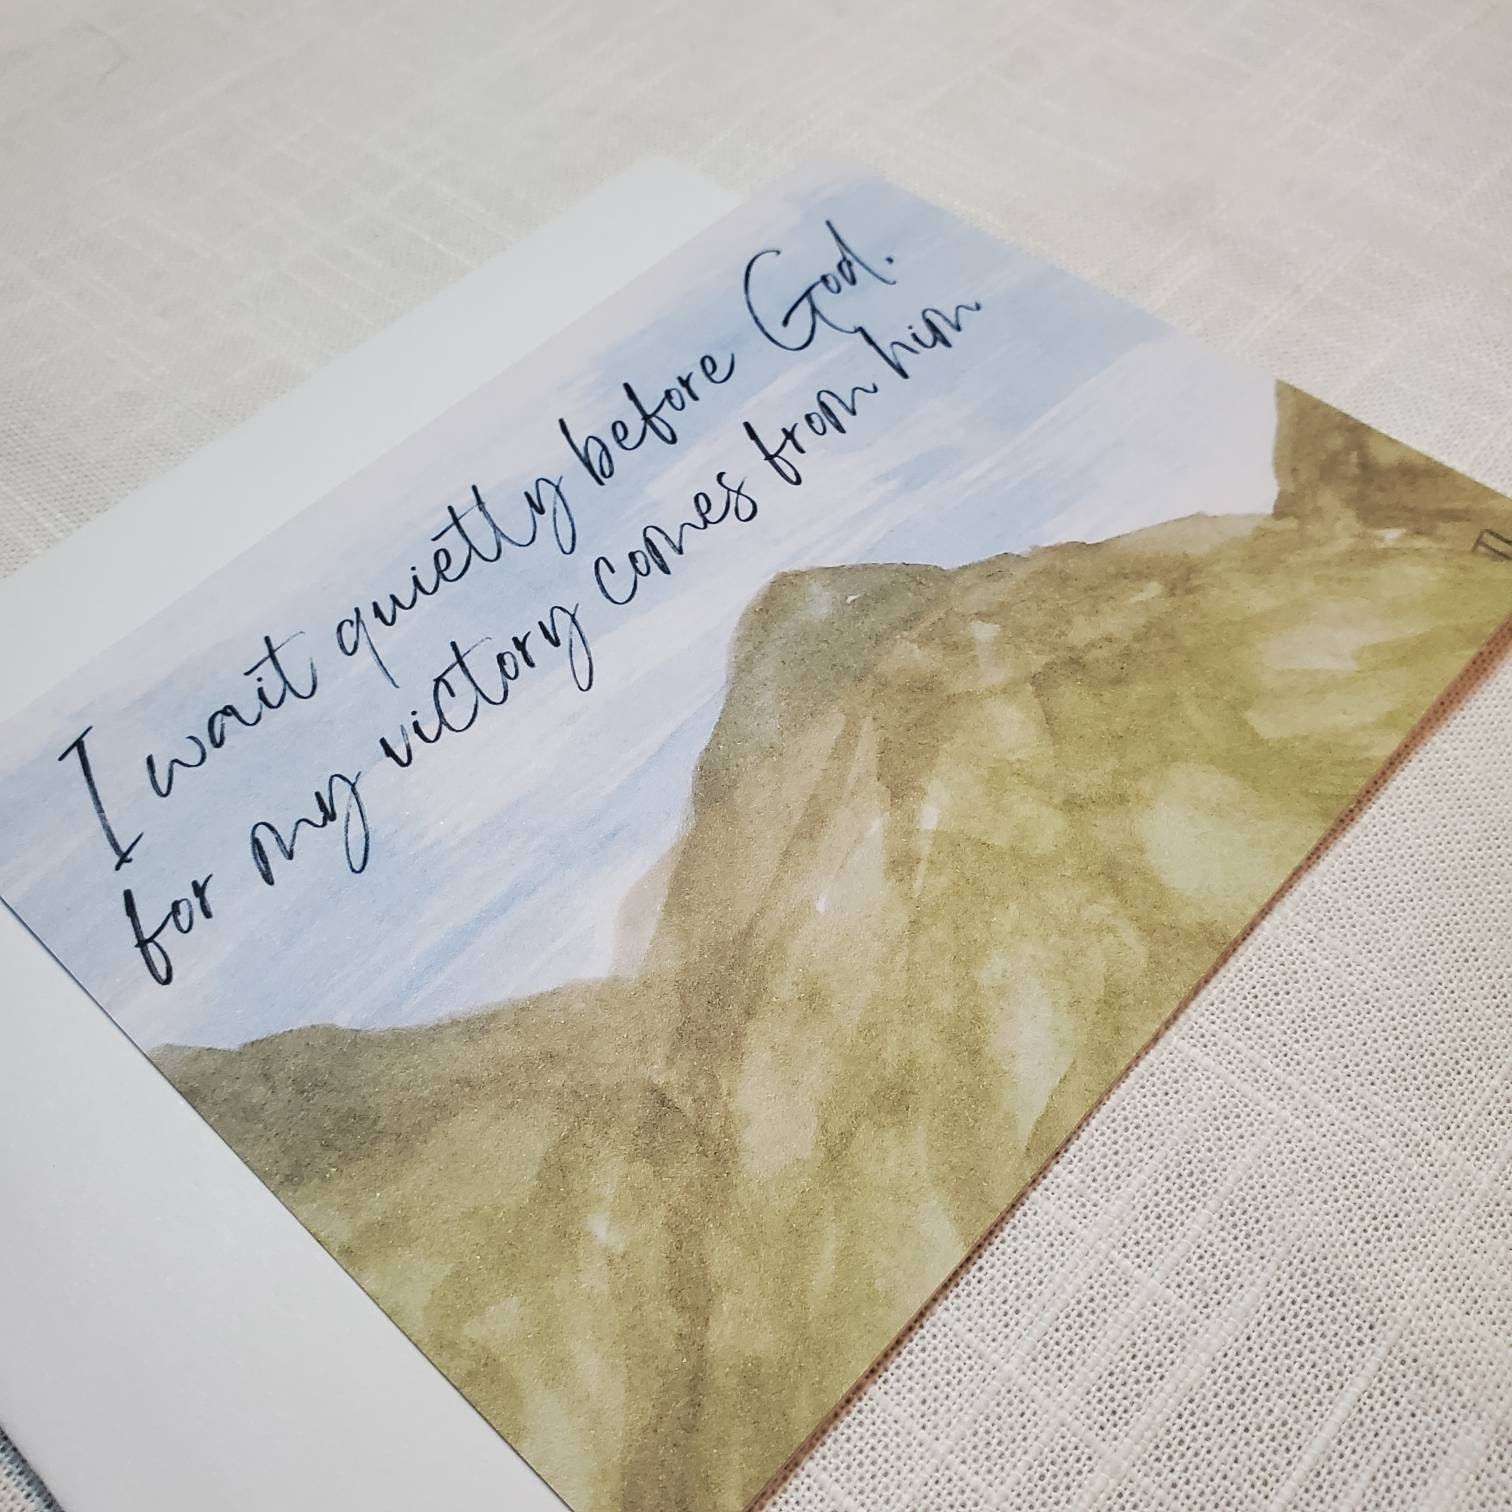 I wait quietly before God.
for my victory comes from him